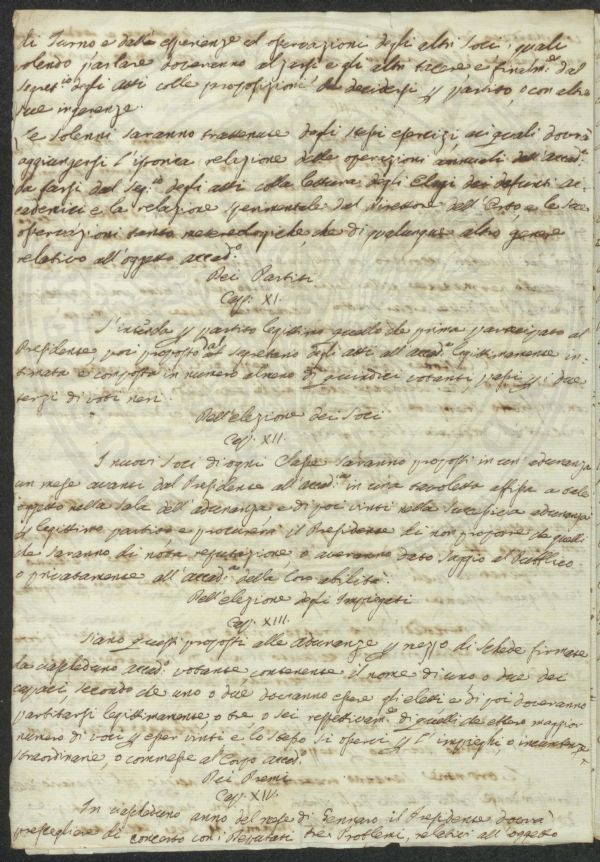 di Turno e dalle esperienze ed osservazioni degli altri Soci, quali
volendo parlare doveranno alzarsi e gli altri tacere e finalm.e dal
Segret.io degli Atti colle proposizioni da decidersi p partito, o con altre
sue ingerenze.
Le Solenni saranno trattenute degli stessi esercizi ai quali dovrà
aggiungersi l'istorica relazione delle operazioni annuali dell'accad.a
da farsi dal Seg.io degli atti colla lettura degli Elogi dei defunti Ac-
cademici e la relazione sperimentale dal Direttore dell'Orto, e le sue
osservazioni tanto meteorologiche, che di qualunque altro genere
relativo all'oggetto accad.o
Dei Partiti
Cap. XI.
S'intenda p partito legittimo quello che prima partecipato al
Presidente poi proposto dal segretario degli atti all'accad.a legittimamente in-
timata e composta in numero almeno di quindici votanti, passi p due
terzi di voti neri.
Dell'elezione dei Soci
Cap. XII.
I nuovi Soci di ogni Classe saranno proposti in un'adunanza
un mese avanti dal Presidente all'accad.a in una tavoletta affissa a tale
oggetto nella Sala dell'adunanza e di poi vinti nella successiva adunanza
p legittimo partito e procurerà il Presidente di non proporre che quelli
che saranno di nota reputazione, o averanno dato saggio al Pubblico
o privatamente all'accad.a della loro abilità.
Dell'elezione degli Impiegati
Cap. XIII.
Siano questi proposti alle adunanze p mezzo di schede firmate
da ciascheduno accad.o votante contenente il nome di uno o due dei
capaci secondo che uno o due dovranno essere gli eletti e di poi doveranno
partitarsi legittimamente, o tre, o sei respettivam.e di quelli che ebbero maggior
numero di voci p esser vinti e lo stesso si osservi p l'impieghi, o incumbenze
straordinarie, o commesse al Corpo accad.o
Dei Premi
Cap. XIV.
In ciascheduno anno del mese di Gennaro il Presidente dovrà
prescegliere di concerto con i Deputati tre Problemi, relativi all'oggetto